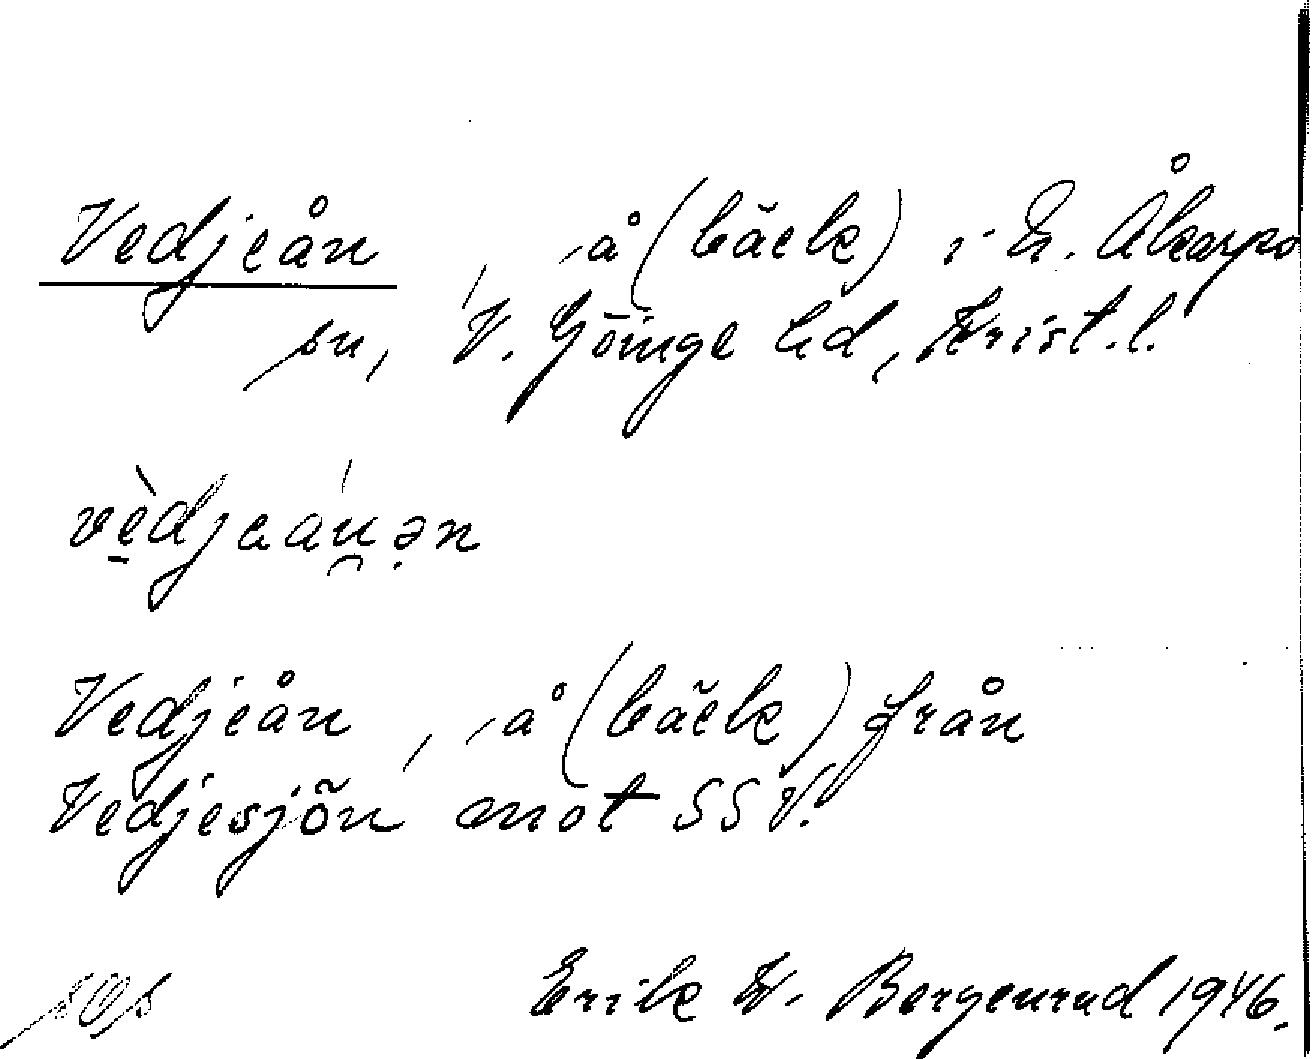 Vedjeån, å (bäck) i N. Åkarps
sn, V. Göinge hd, Krist. l.
vèdjaáu̯ən
Vedjeån, å (bäck) från
Vedjesjön mot SSV.
Erik W. Bergenrud 1946.